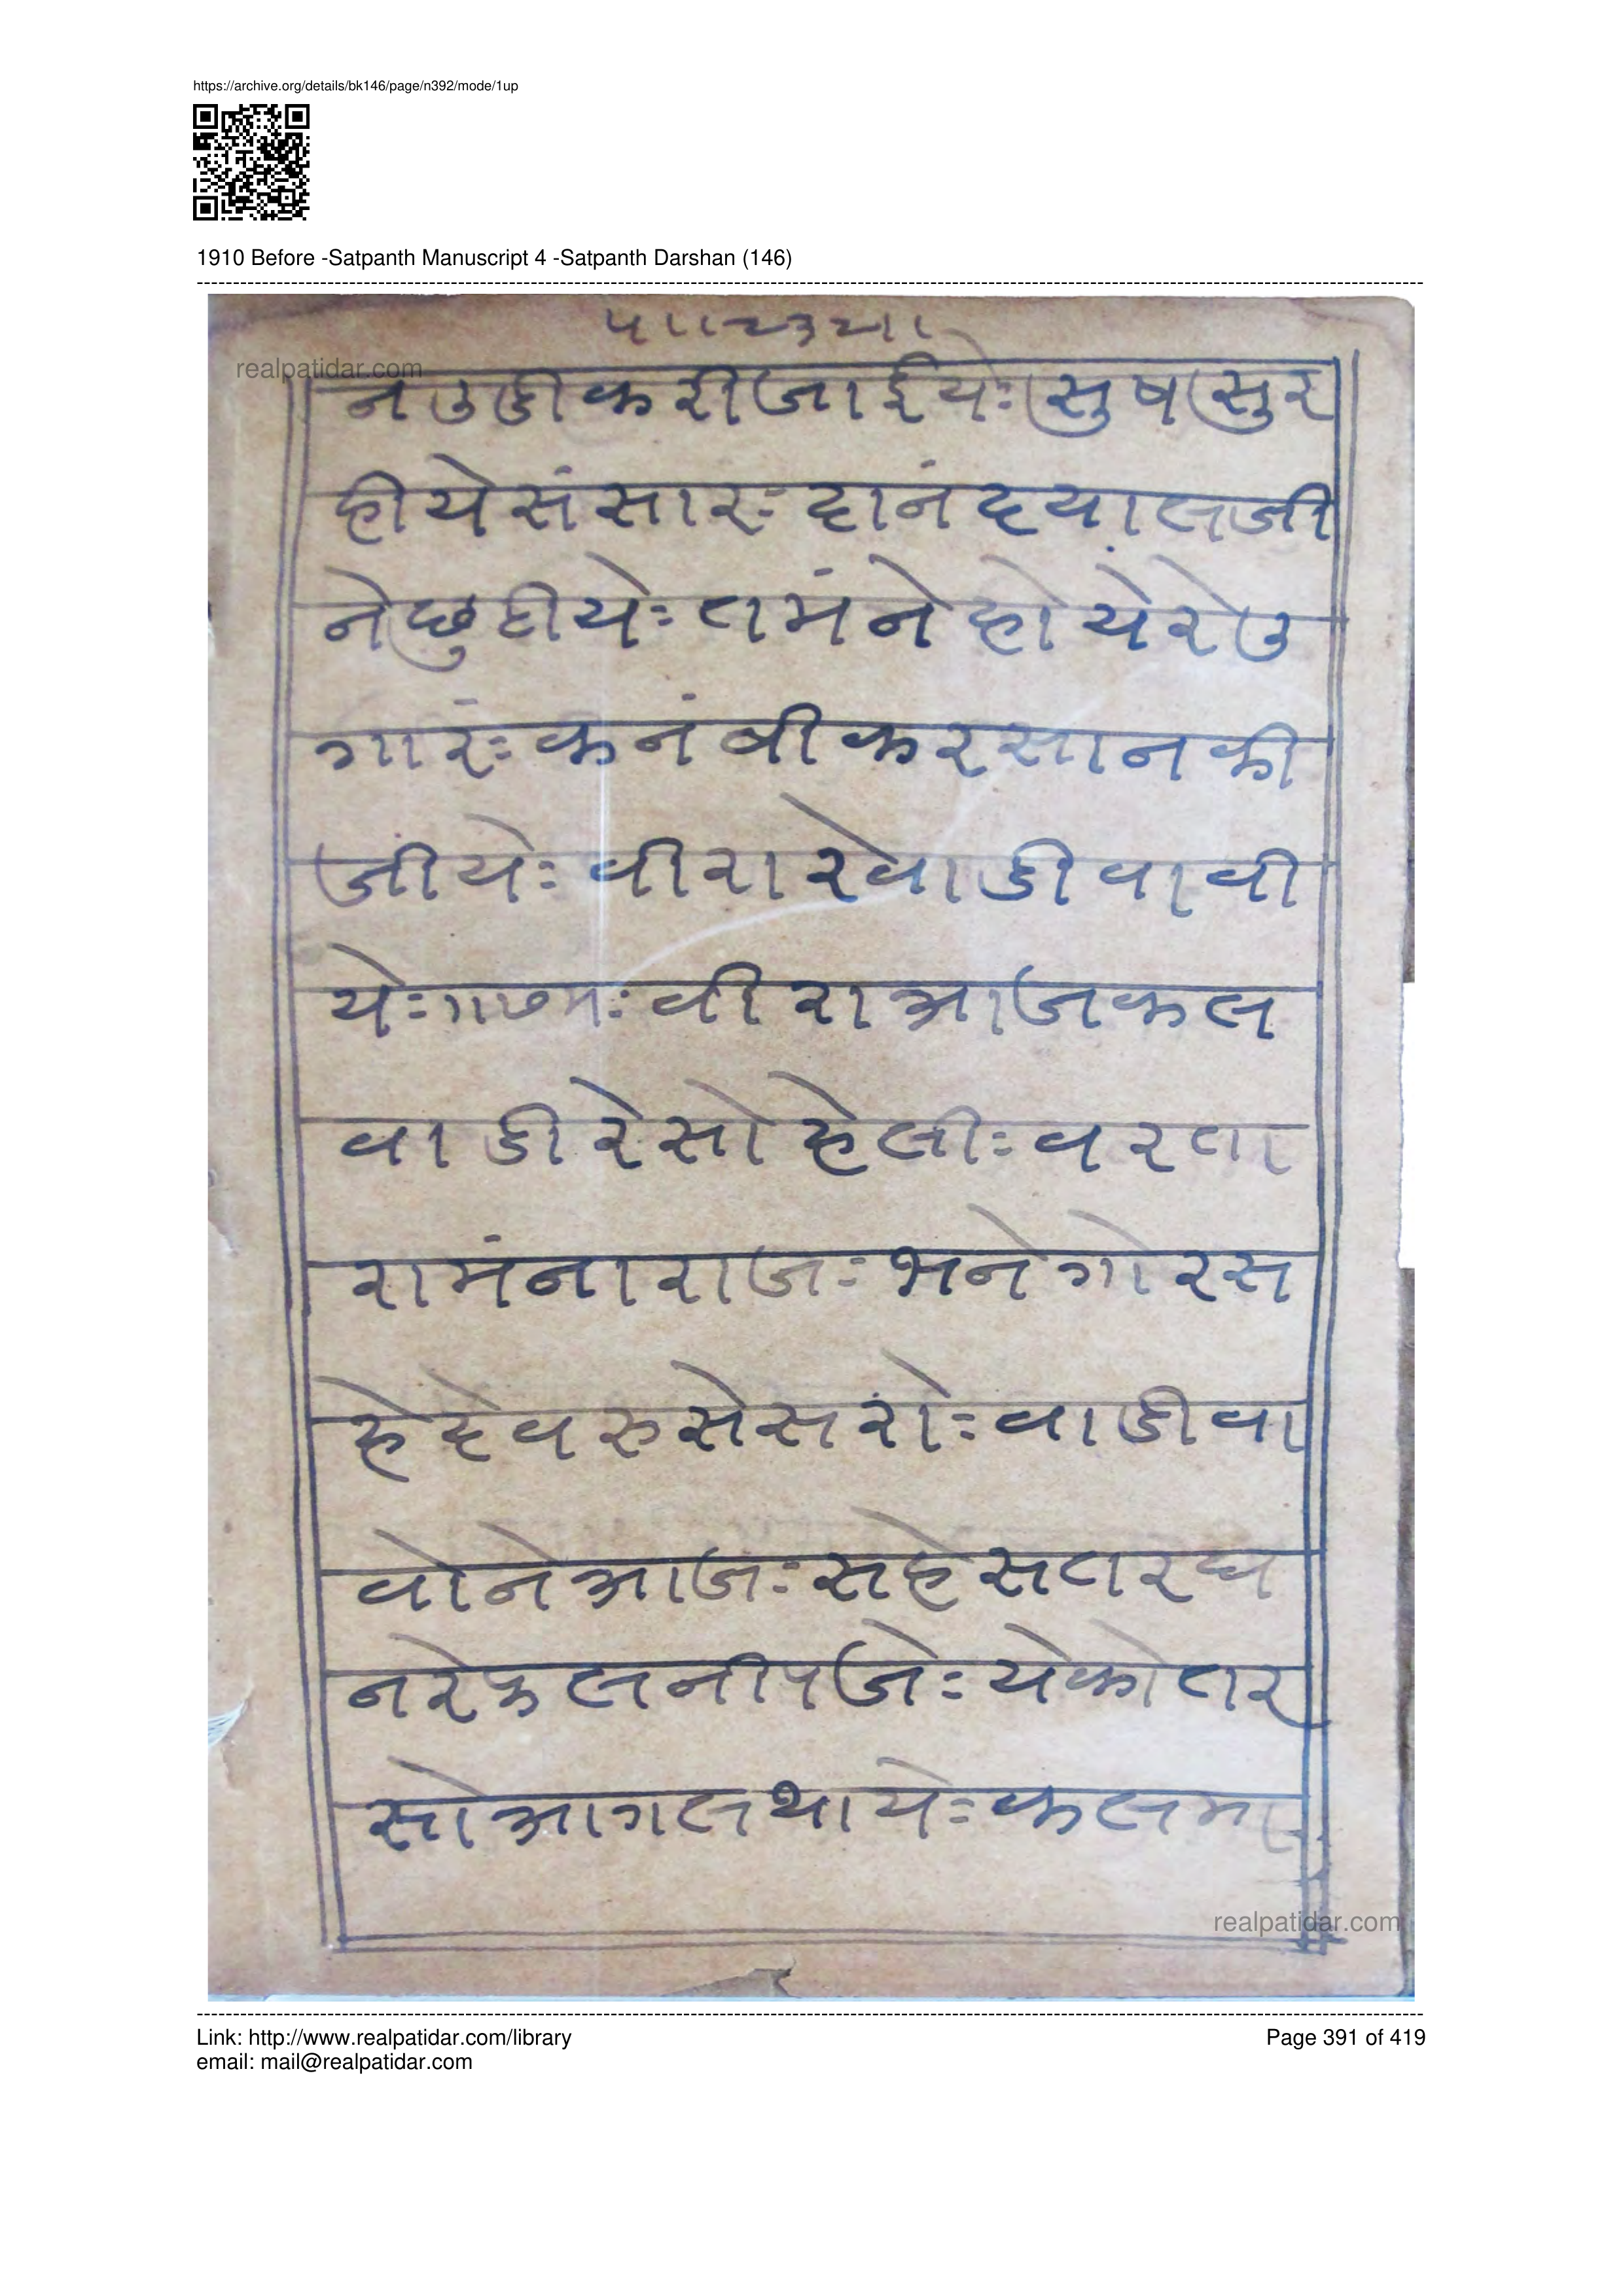 https://archive.org/details/bk146/page/n392/mode/1up
1910 Before -Satpanth Manuscript 4 -Satpanth Darshan (146)
realpatidar.com
न उडी करी जाईयेः सुष सुर
हीये संसारः दांनं दयालजी
ने छुटीयेः तमंने होये रे उ
गारंः कनंबी करसान की
जीयेः वीरा रे वाडी वावी
येः वीरा आज कल
वाडी रे सोहेलीः वरता
रामंना राजः भने गोर स
हे देव रुसेसरोः वाडी वा
वोने आजः सहेसतर घ
न रे फल नीपजेः येकोतर
सो आगल थायेः कलमा
realpatidar.com
Link: http://www.realpatidar.com/library
email: mail@realpatidar.com
Page 391 of 419